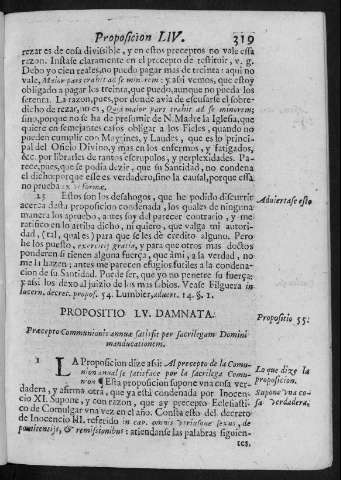 Proposicion LIV. 319
rezar es de cosa divissible, y en estos preceptos no vale essa
razon. Instase claramente en el precepto de restituir, v. g.
Debo yo cien reales, no puedo pagar mas de treinta: aqui no
vale, Maior pars trahit ad se minorem: y assi vemos, que estoy
obligado à pagar los treinta, que puedo, aunque no pueda los
setenta. La razon, pues, por donde avia de escusarse el sobre-
dicho de rezar, no es, Quia maior pars trahit ad se minorem;
sino, porque no se ha de presumir de N. Madre la Iglesia, que
quiere en semejantes casos obligar à los Fieles, quando no
pueden cumplir con Maytines, y Laudes, que es lo princi-
pal del Oficio Divino, y mas en los enfermos, y fatigados,
&c. por librarles de tantos escrupulos, y perplexidades. Pa-
rece, pues, que se podia dezir, que su Santidad, no condena
el dicho; porque esse es verdadero, sino la causal, porque essa
no prueba
25 Estos son los desahogos, que he podido discurrir
acerca desta proposicion condenada, los quales de ninguna
manera los apruebo, antes soy del parecer contrario, y me
ratifico en lo arriba dicho, ni quiero, que valga mi autori-
dad, (tal, qual es) para que se les de credito alguno. Pero
he los puesto, exercitij gratia, y para que otros mas doctos
ponderen si tienen alguna fuerça, que à la verdad, no
me la hazen; antes me parecen efugios futiles à la condena-
cion de su Santidad. Por de ser, que yo no penetre su fuerça;
y assi los dexo al juizio de los mas sabios. Vease Filguera in
lucern. decret. propos. 54. Lumbier, advert. 14. §. 1.
Adviertase esto
PROPOSITIO LV. DAMNATA.
Propositio 55.
Præcepto Communionis annuæ satisfit per sacrilegam Domini
manducationem.
1 LA Proposicion dize assi: Al precepto de la Comu-
nion annal se satisface por la sacrilega Comu-
nion ¶ Esta proposicion supone vna cosa ver-
dadera, y afirma otra, que ya está condenada por Inocen-
cio XI. Supone, y con razon, que ay precepto Eclesiasti-
co de Comulgar vna vez en el año. Consta esto del decreto
de Inocencio III. referido in cap. omnis vtriusque sexus, de
pœnitentijs, & remissionibus: atiendanse las palabras siguien-
tes.
Lo que dize la
proposicion.
Supone vna co-
sa verdadera.